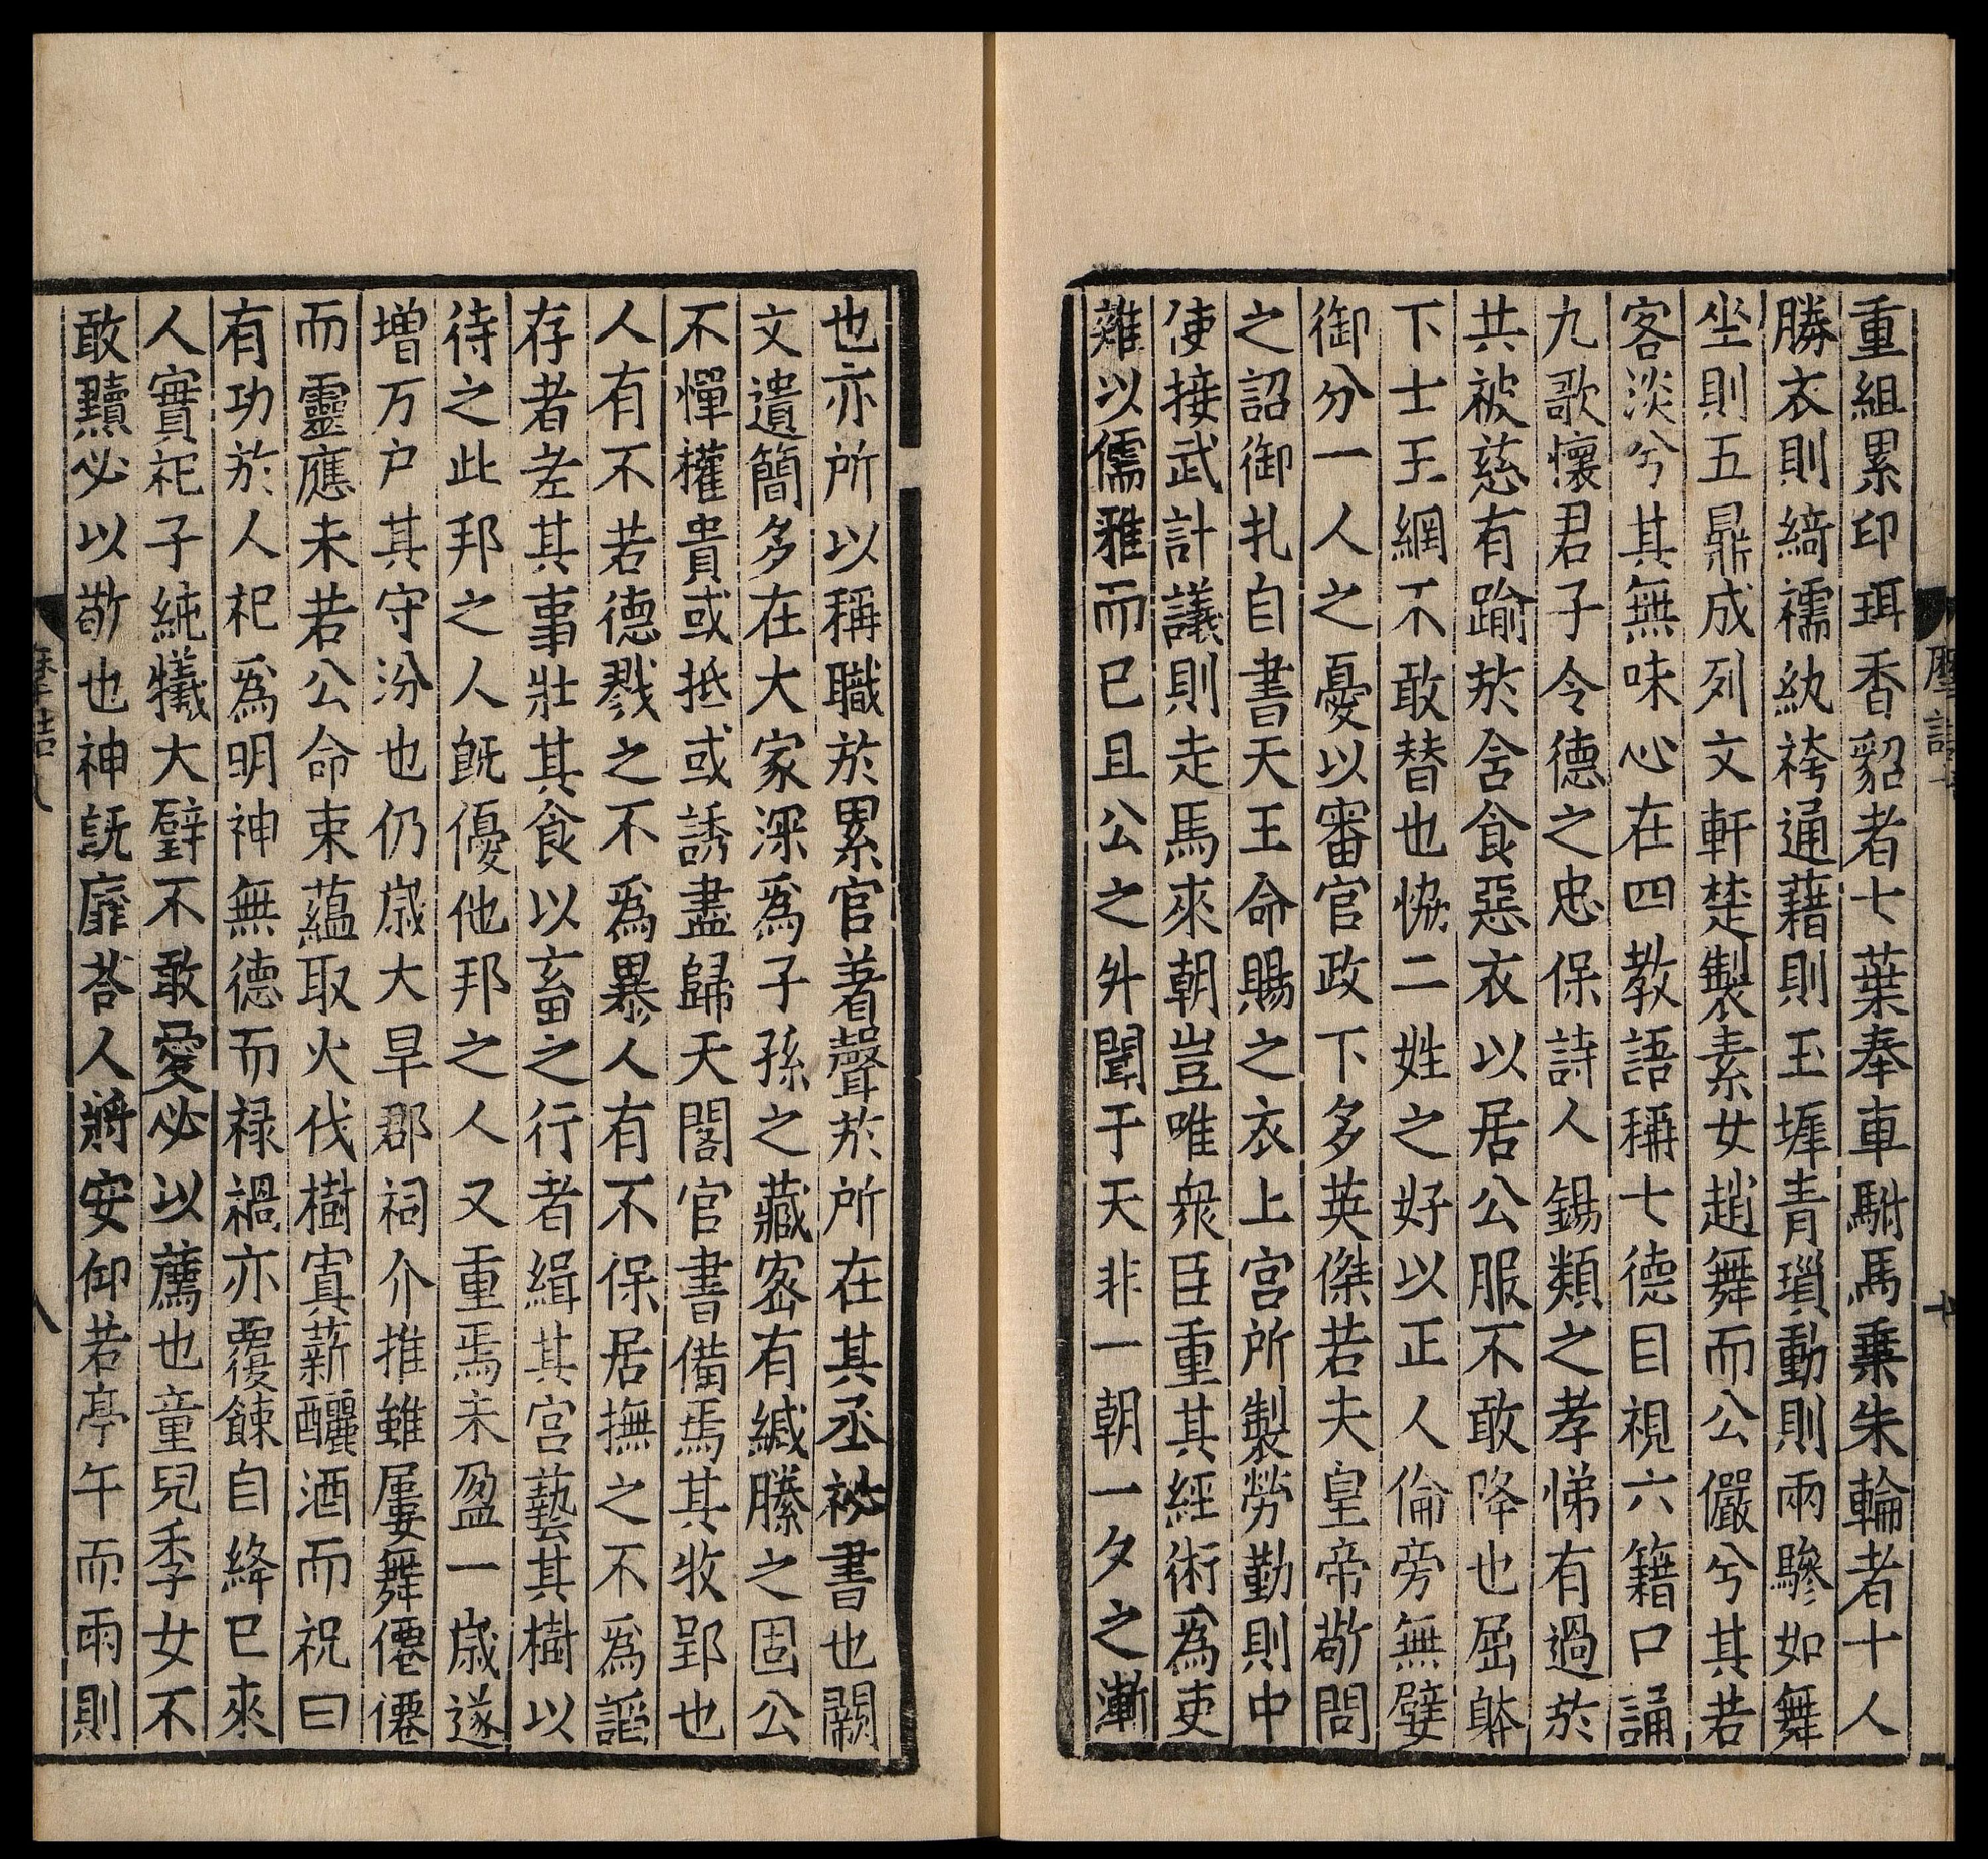 重組累印珥香貂者七葉奉車駙馬乗朱輪者十人
勝衣則綺襦紈袴通藉則玉墀青瑣動則兩驂如舞
坐則五鼎成列文軒楚製素女趙舞而公儼兮其若
客淡兮其無味心在四教語稱七德目視六籍口誦
九歌懷君子令德之忠保詩人錫類之孝悌有過於
共被慈有踰於舍食惡衣以居公服不敢降也屈躰
下士王網不敢替也恊二姓之好以正人倫旁無嬖
御分一人之憂以審官政下多英傑若夫皇帝敬問
之詔御札自書天王命賜之衣上宮所製勞勤則中
使接武計議則走馬來朝豈唯衆臣重其經術爲吏
雜以儒雅而已且公之外聞于天非一朝一夕之漸
也亦所以稱職於累官著聲於所在其丞祕書也闕
文遺簡多在大家深爲子孫之藏宻有緘縢之固公
不憚權貴或抵或誘盡歸天閣官書備焉其牧郢也
人有不若德戮之不爲暴人有不保居撫之不爲謡
存者差其事壯其食以畜之行者緝其宮藝其樹以
待之此邦之人旣優他邦之人又重焉未盈一歲遂
増万户其守汾也仍歲大旱郡祠介推雖屢舞僊僊
而靈應未若公命束蘊取火伐樹寘薪釃酒而祝曰
有功於人祀爲明神無德而禄禍亦覆餗自絳巳來
人實祀子純犧大璧不敢愛必以薦也童皃季女不
敢黷必以敬也神旣靡荅人將安仰若亭午而雨則